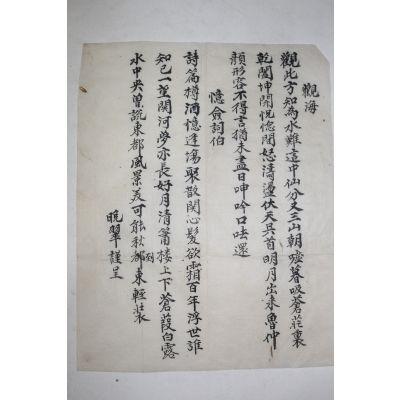 觀海
觀此方知為水難這中仙分又三山朝噓暮吸蒼茫裏
乾闔坤闢怳惚間怒濤盪伏天兵首明月出來魯仲
顔形容不得言猶未盡日呻吟口呿還
憶僉詞伯
詩篇樽酒憶逢場聚散関心髮欲霜百年浮世誰
知己一望関河夢亦長好月清簫樓上下蒼葭白露
水中央曽説東都風景美可能秋到東輕裝
晩翠謹呈